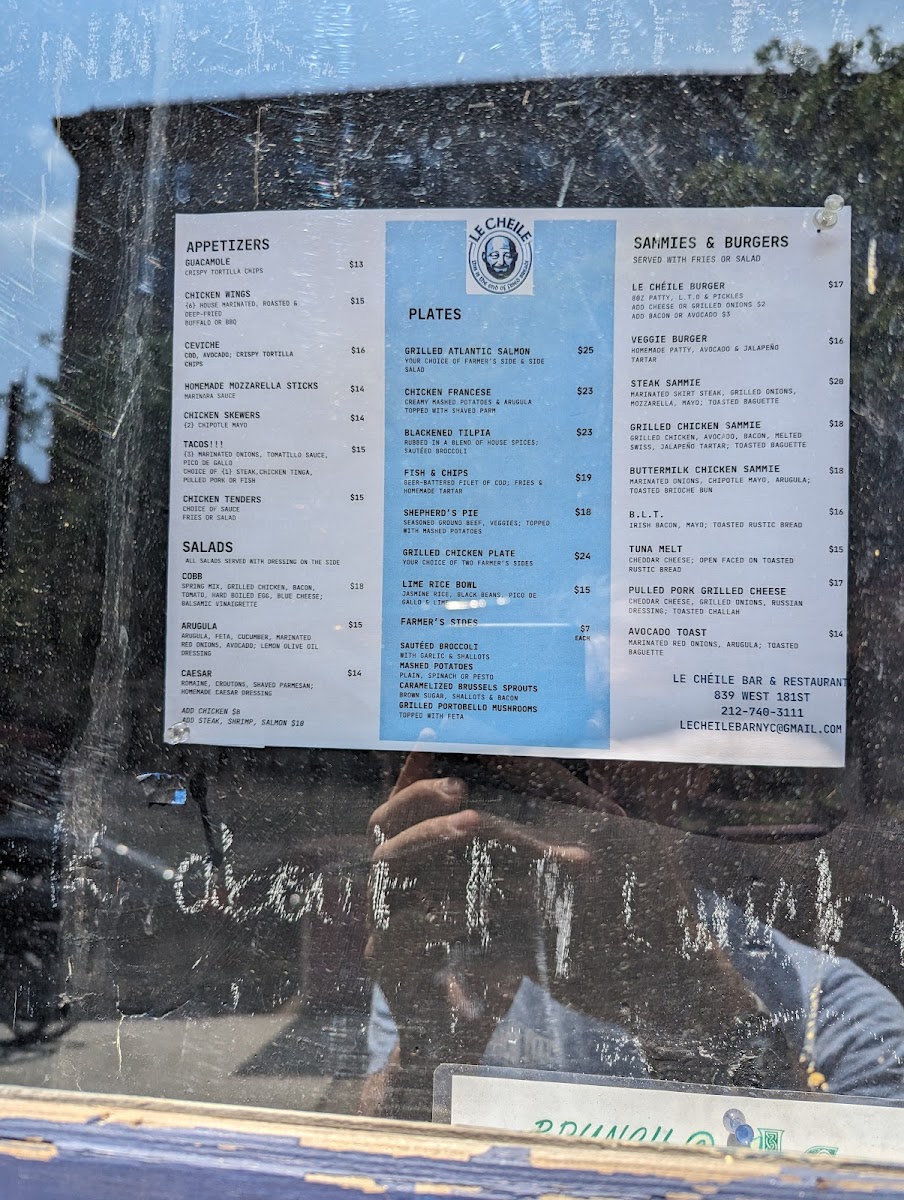 APPETIZERS
GUACAMOLE $13
CRISPY TORTILLA CHIPS
CHICKEN WINGS $15
{6} HOUSE MARINATED, ROASTED &
DEEP-FRIED
BUFFALO OR BBQ
CEVICHE $16
COD, AVOCADO; CRISPY TORTILLA
CHIPS
HOMEMADE MOZZARELLA STICKS $14
MARINARA SAUCE
CHICKEN SKEWERS $14
{2} CHIPOTLE MAYO
TACOS!!! $15
{3} MARINATED ONIONS, TOMATILLO SAUCE,
PICO DE GALLO
CHOICE OF {1} STEAK,CHICKEN TINGA,
PULLED PORK OR FISH
CHICKEN TENDERS $15
CHOICE OF SAUCE
FRIES OR SALAD
SALADS
ALL SALADS SERVED WITH DRESSING ON THE SIDE
COBB $18
SPRING MIX, GRILLED CHICKEN, BACON,
TOMATO, HARD BOILED EGG, BLUE CHEESE;
BALSAMIC VINAIGRETTE
ARUGULA $15
ARUGULA, FETA, CUCUMBER, MARINATED
RED ONIONS, AVOCADO; LEMON OLIVE OIL
DRESSING
CAESAR $14
ROMAINE, CROUTONS, SHAVED PARMESAN;
HOMEMADE CAESAR DRESSING
ADD CHICKEN $8
ADD STEAK, SHRIMP, SALMON $10
LE CHEILE
PLATES
GRILLED ATLANTIC SALMON $25
YOUR CHOICE OF FARMER'S SIDE & SIDE
SALAD
CHICKEN FRANCESE $23
CREAMY MASHED POTATOES & ARUGULA
TOPPED WITH SHAVED PARM
BLACKENED TILPIA $23
RUBBED IN A BLEND OF HOUSE SPICES;
SAUTÉED BROCCOLI
FISH & CHIPS $19
BEER-BATTERED FILET OF COD; FRIES &
HOMEMADE TARTAR
SHEPHERD'S PIE $18
SEASONED GROUND BEEF, VEGGIES; TOPPED
WITH MASHED POTATOES
GRILLED CHICKEN PLATE $24
YOUR CHOICE OF TWO FARMER'S SIDES
LIME RICE BOWL $15
JASMINE RICE, BLACK BEANS, PICO DE
GALLO & LIME
FARMER'S SIDES $7
EACH
SAUTÉED BROCCOLI
WITH GARLIC & SHALLOTS
MASHED POTATOES
PLAIN, SPINACH OR PESTO
CARAMELIZED BRUSSELS SPROUTS
BROWN SUGAR, SHALLOTS & BACON
GRILLED PORTOBELLO MUSHROOMS
TOPPED WITH FETA
SAMMIES & BURGERS
SERVED WITH FRIES OR SALAD
LE CHÉILE BURGER $17
8OZ PATTY, L.T.O & PICKLES
ADD CHEESE OR GRILLED ONIONS $2
ADD BACON OR AVOCADO $3
VEGGIE BURGER $16
HOMEMADE PATTY, AVOCADO & JALAPEÑO
TARTAR
STEAK SAMMIE $20
MARINATED SKIRT STEAK, GRILLED ONIONS,
MOZZARELLA, MAYO; TOASTED BAGUETTE
GRILLED CHICKEN SAMMIE $18
GRILLED CHICKEN, AVOCADO, BACON, MELTED
SWISS, JALAPEÑO TARTAR; TOASTED BAGUETTE
BUTTERMILK CHICKEN SAMMIE $18
MARINATED ONIONS, CHIPOTLE MAYO, ARUGULA;
TOASTED BRIOCHE BUN
B.L.T. $16
IRISH BACON, MAYO; TOASTED RUSTIC BREAD
TUNA MELT $15
CHEDDAR CHEESE; OPEN FACED ON TOASTED
RUSTIC BREAD
PULLED PORK GRILLED CHEESE $17
CHEDDAR CHEESE, GRILLED ONIONS, RUSSIAN
DRESSING; TOASTED CHALLAH
AVOCADO TOAST $14
MARINATED RED ONIONS, ARUGULA; TOASTED
BAGUETTE
LE CHÉILE BAR & RESTAURANT
839 WEST 181ST
212-740-3111
LECHEILEBARNYC@GMAIL.COM
BRUNCH @